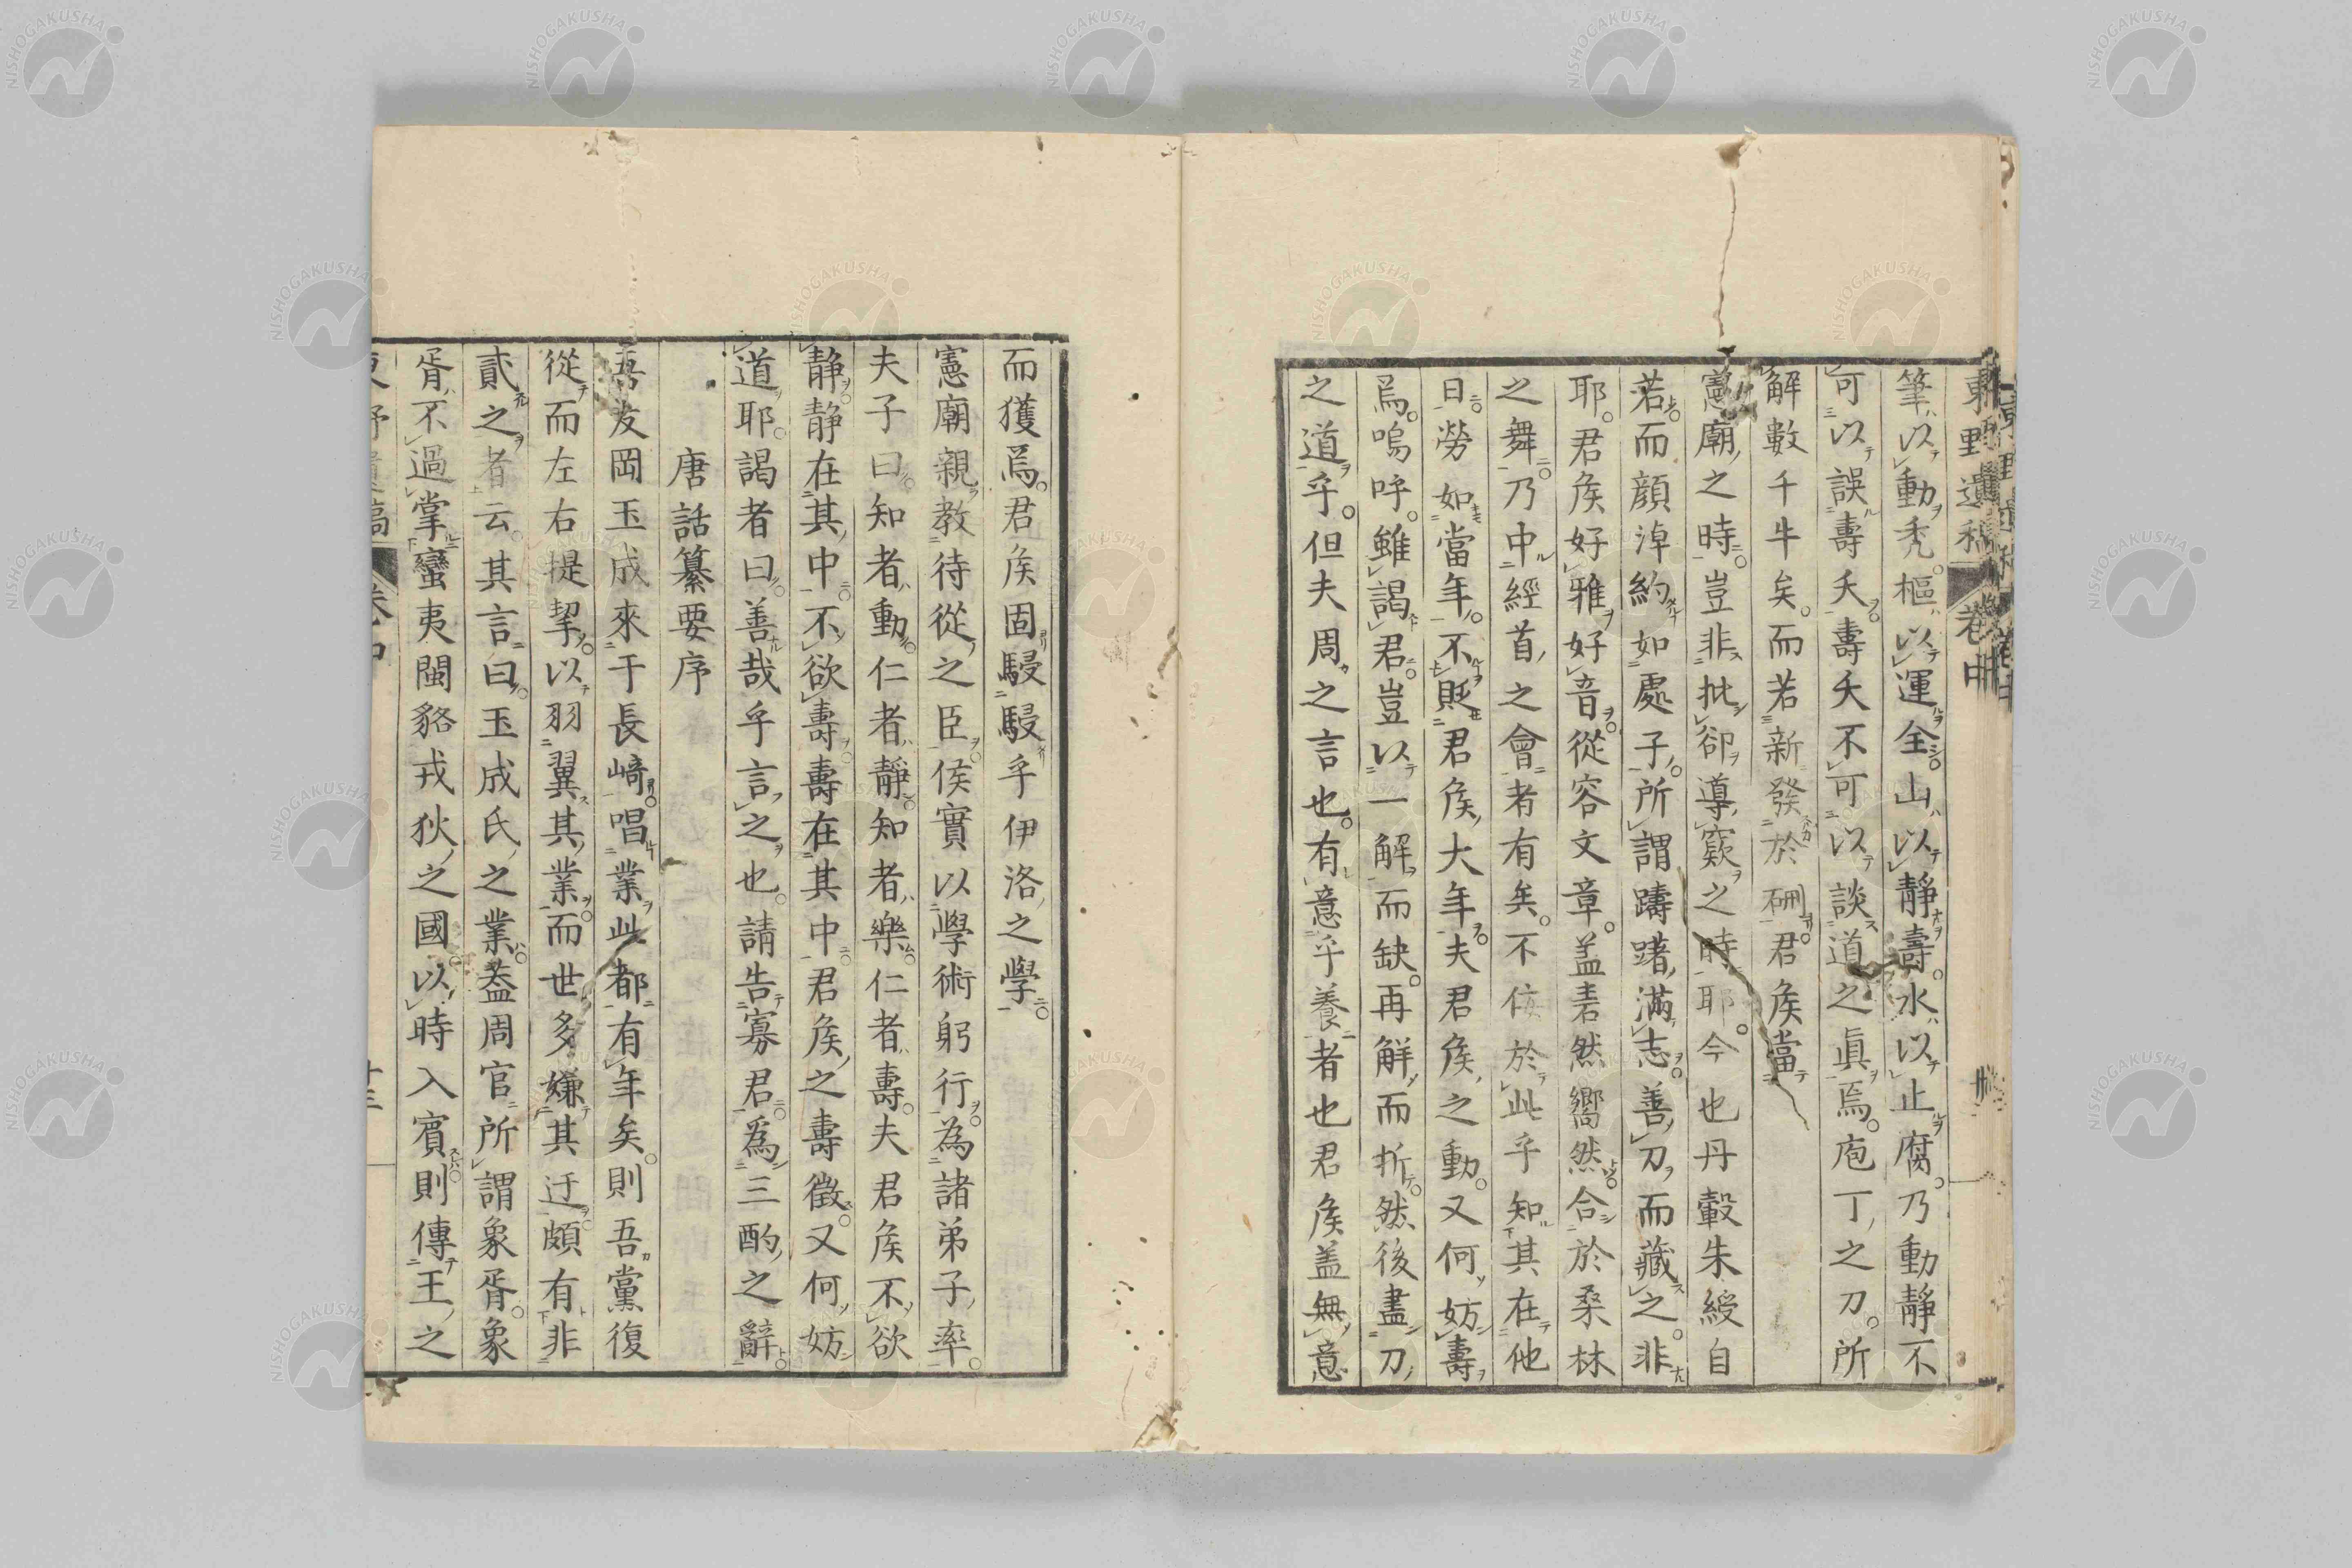 東野遺稿 卷中
筆以動秃。樞以運全。山以靜壽。水以止腐。乃動靜不
可以誤壽夭。壽夭不可以談道之眞焉。庖丁之刀。所
解數千牛矣。而若新發於硎。君矦當
憲廟之時。豈非批郤導窾之時耶。今也丹轂朱綬自
若。而顔淖約如處子。所謂躊躇滿志。善刀而藏之。非
耶。君矦好雅好音。從容文章。盖砉然嚮然。合於桑林
之舞。乃中經首之會者有矣。不侫於此乎知其在他
日勞如當年。不貶君矦大年。夫君矦之動。又何妨壽
焉。嗚呼。雖謁君。豈以一解而缺。再解而折。然後盡刀
之道乎。但夫周之言也。有意乎養者也君矦盖無意
而獲焉。君矦固駸駸乎伊洛之學。
憲廟親教待從之臣。侯實以學術躬行。為諸弟子率。
夫子曰。知者動。仁者靜。知者樂。仁者壽。夫君矦不欲
靜。静在其中。不欲壽。壽在其中。君矦之壽徵。又何妨
道耶。謁者曰。善哉乎言之也。請告寡君。為三酌之辭。
唐話纂要序
吾友岡玉成來于長﨑。唱業此都有年矣。則吾黨復
從而左右提挈。以羽翼其業。而世多嫌其迂。頗有非
貳之者云。其言曰。玉成氏之業。葢周官所謂象胥。象
胥不過掌蠻夷閩貉戎狄之國。以時入賓。則傳王之
東野遺稿 卷中 十三